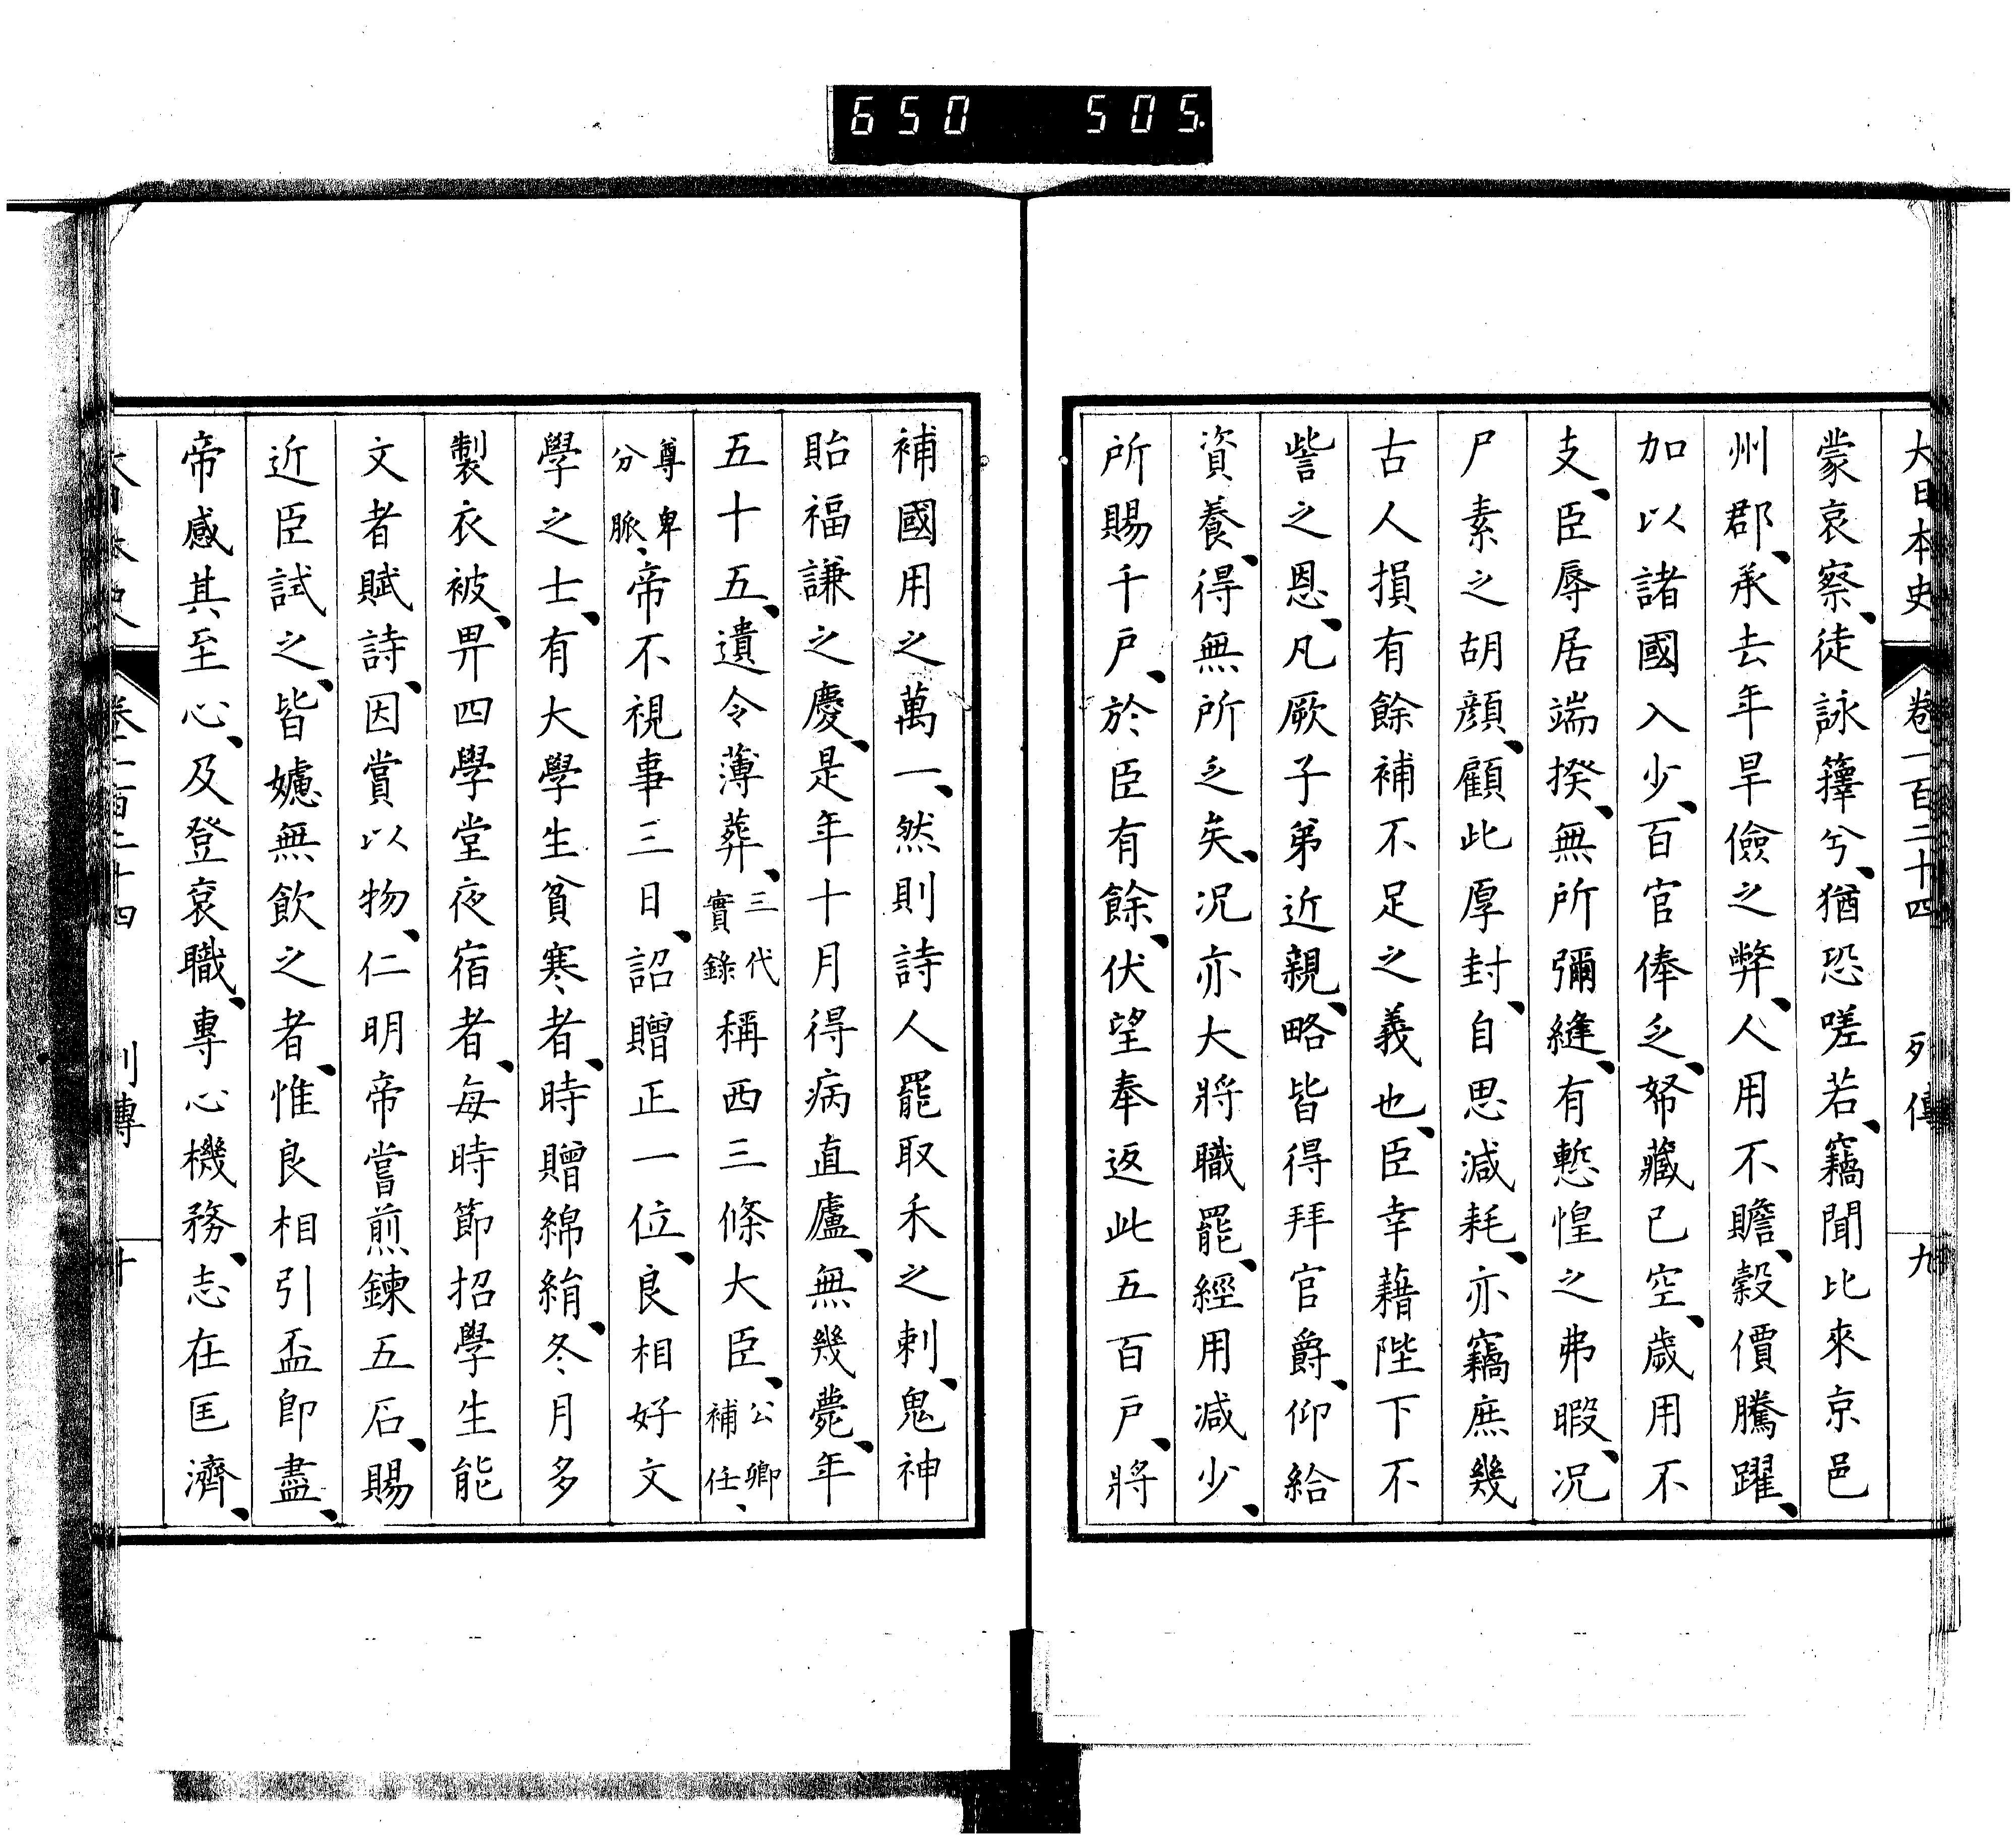 650 505
大日本史 卷一百二十四 列傳 九
蒙哀察、徒詠蘀兮、猶恐嗟若、竊聞比來京邑
州郡、承去年旱儉之弊、人用不贍、穀價騰躍、
加以諸國入少、百官俸乏、帑藏已空、歲用不
支、臣辱居端揆、無所彌縫、有慙惶之弗暇、况
尸素之胡顔、顧此厚封、自思減耗、亦竊庶幾
古人損有餘補不足之義也、臣幸藉陛下不
訾之恩、凡厥子弟近親、略皆得拜官爵、仰給
資養、得無所乏矣、况亦大將職罷、經用減少、
所賜千戸、於臣有餘、伏望奉返此五百戸、將
補國用之萬一、然則詩人罷取禾之刺、鬼神
貽福謙之慶、是年十月得病直廬、無幾薨、年
五十五、遺令薄葬、三代實錄稱西三條大臣、公卿補任、
尊卑分脈、帝不視事三日、詔贈正一位、良相好文
學之士、有大學生貧寒者、時贈綿絹、冬月多
製衣被、畀四學堂夜宿者、每時節招學生能
文者賦詩、因賞以物、仁明帝嘗煎鍊五石、賜
近臣試之、皆㜸無飮之者、惟良相引盃卽盡、
帝感其至心、及登袞職、專心機務、志在匡濟、
卷一百二十四 列傳 十